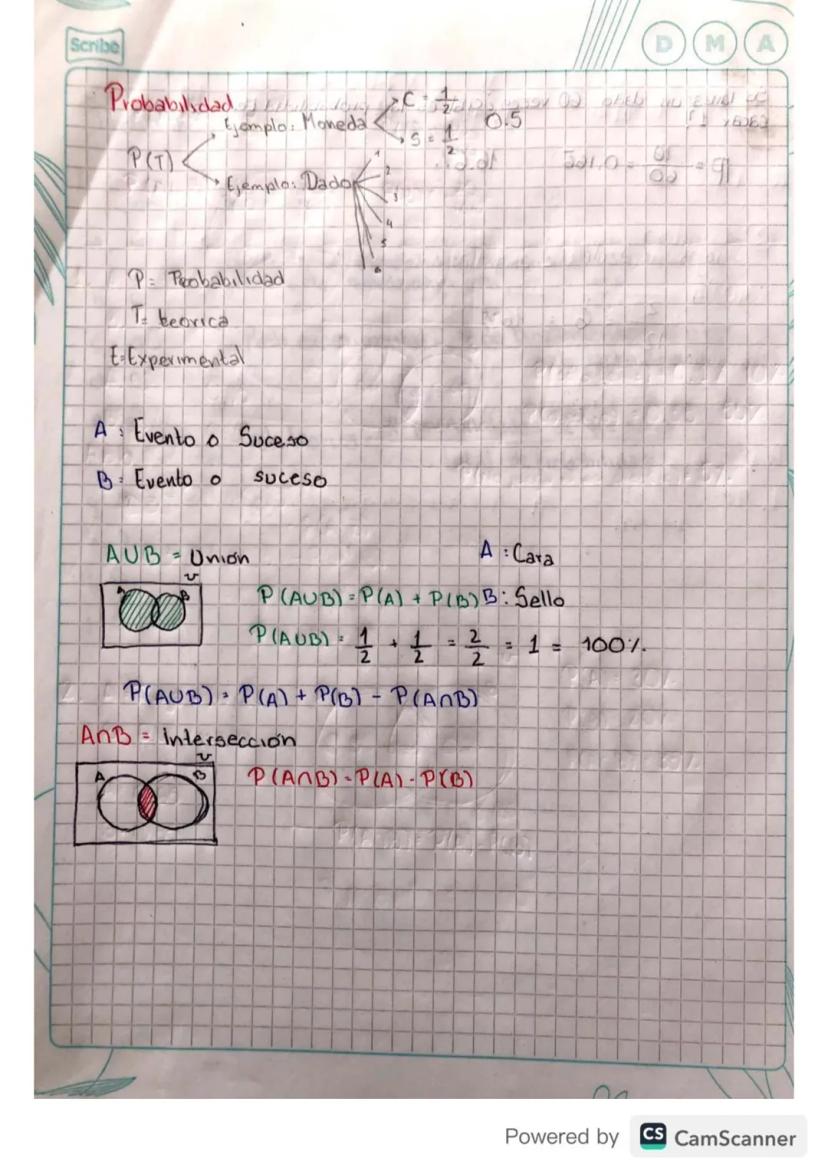 Scribe
D M A
Probabilidad
P(T)
Ejemplo: Moneda
C = 1/2
S = 1/2
0.5
Ejemplo: Dado
1
2
3
4
5
6
P = Probabilidad
T = teorica
E = Experimental
A : Evento o Suceso
B : Evento o suceso
AUB = Unión
A : Cara
A B U
P(AUB) = P(A) + P(B) B : Sello
P(AUB) = 1/2 + 1/2 = 2/2 = 1 = 100%.
P(AUB) = P(A) + P(B) - P(A∩B)
A∩B = Intersección
A B U
P(A∩B) - P(A) - P(B)
Powered by CS CamScanner